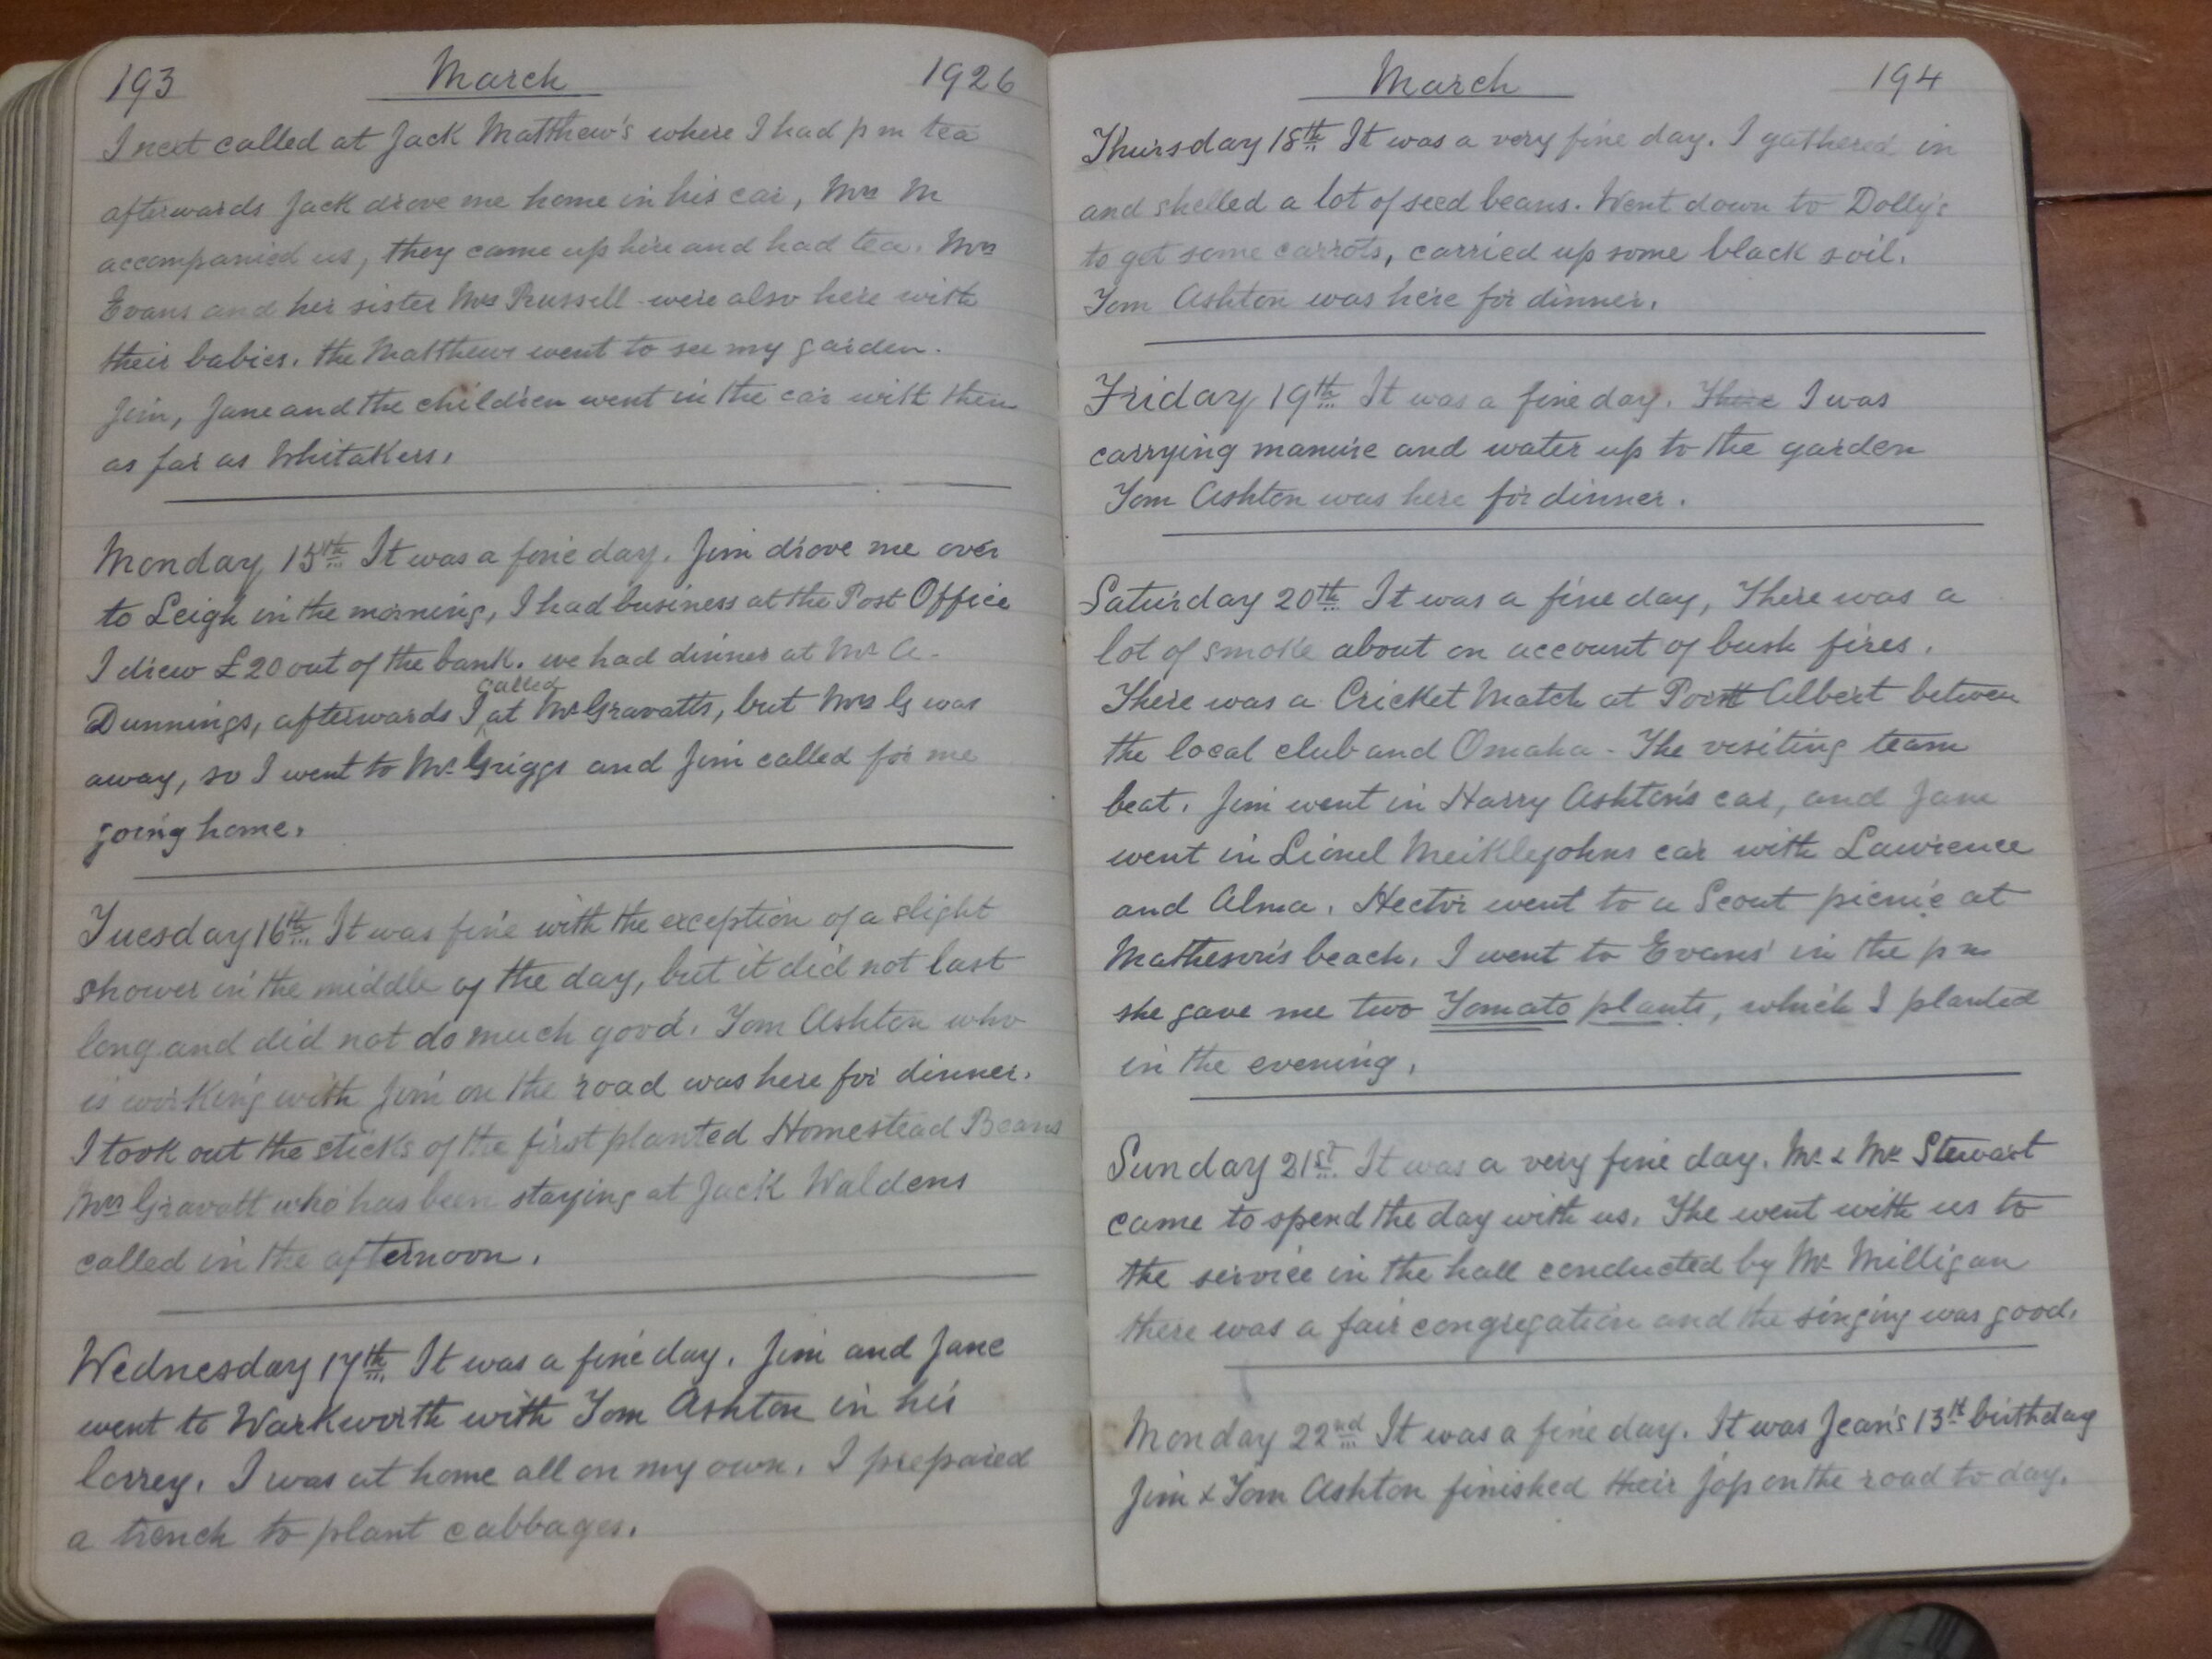 193 March 1926
I next called at Jack Matthew's where I had pm tea
afterwards Jack drove me home in his car, Mrs M
accompanied us, they came up here and had tea. Mrs
Evans and her sister Mrs Russell were also here with
their babies. the Matthews went to see my garden.
Jim, Jane and the children went in the car with them
as far as Whitakers.
Monday 15th It was a fine day. Jim drove me over
to Leigh in the morning, I had business at the Post Office
I drew £20 out of the bank. we had dinner at Mr A.
Dunnings, afterwards I called at Mr Gravatts, but Mrs G was
away, so I went to Mr Griggs and Jim called for me
going home.
Tuesday 16th It was fine with the exception of a slight
shower in the middle of the day, but it did not last
long and did not do much good. Tom Ashton who
is working with Jim on the road was here for dinner.
I took out the sticks of the first planted Homestead Beans
Mrs Gravatt who has been staying at Jack Waldens
called in the afternoon.
Wednesday 17th It was a fine day. Jim and Jane
went to Warkworth with Tom Ashton in his
lorrey. I was at home all on my own. I prepared
a trench to plant cabbages.
March 194
Thursday 18th It was a very fine day. I gathered in
and shelled a lot of seed beans. Went down to Dolly's
to get some carrots, carried up some black soil.
Tom Ashton was here for dinner.
Friday 19th It was a fine day. There I was
carrying manure and water up to the garden
Tom Ashton was here for dinner.
Saturday 20th It was a fine day, There was a
lot of smoke about on account of bush fires.
There was a Cricket Match at Port Albert between
the local club and Omaha - The visiting team
beat. Jim went in Harry Ashton's car, and Jane
went in Lionel Meiklejohns car with Lawrence
and Alma. Hector went to a Scout picnic at
Matheson's beach. I went to Evans' in the pm
she gave me two Tomato plants, which I planted
in the evening.
Sunday 21st It was a very fine day. Mr & Mrs Stewart
came to spend the day with us. The went with us to
the service in the hall conducted by Mr Milligan
there was a fair congregation and the singing was good.
Monday 22nd It was a fine day. It was Jean's 13th birthday
Jim & Tom Ashton finished their jop on the road to day.